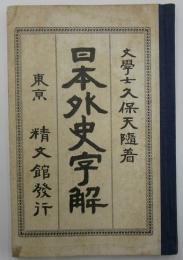 文學士久保天隨著
日本外史字解
東京 精文館發行